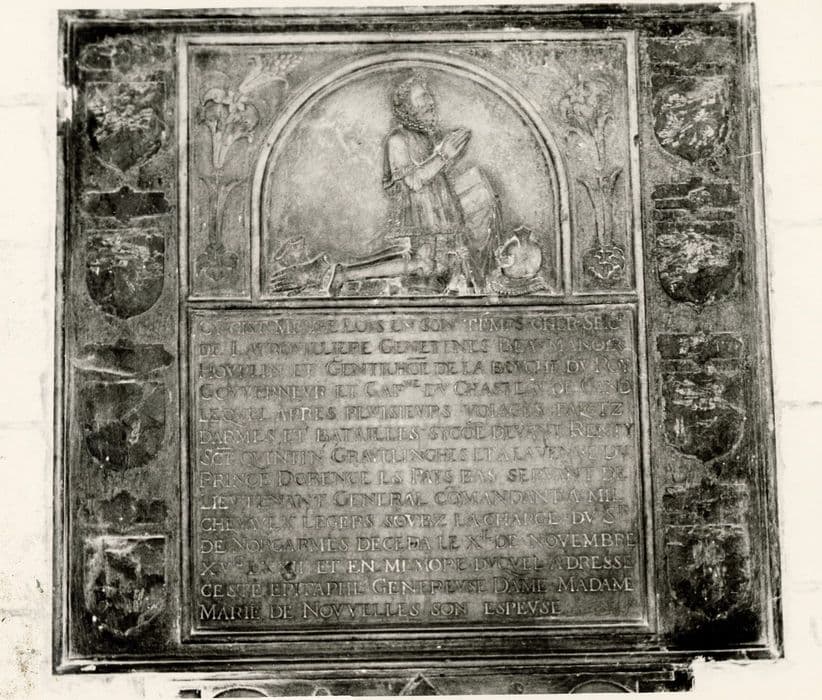 CY GIST MESRE LOIS EN SON TEMPS CHLR SEGR
DE LA GENETINES BEAUMENOIR
ET GENTILHOE DE LA BOUCHE DU ROY
GOUVERNEUR ET CAPNE DU CHASTEAU DE GAND
LEQUEL APRES PLUISIEURS VOIAGES FAICTZ
DARMES ET BATAILLES SICOE DEVANT RENTY
SCT QUINTIN GRAVELINGHES ET A LA VENUE DU
PRINCE DORENGE ES PAYS BAS SERVANT DE
LIEUTENANT GENERAL COMANDANT A MIL
CHEVAULX LEGERS SOUBZ LA CHARGE DU SR
DE NORCARMES DECEDA LE XE DE NOVEMBRE
ET EN MEMORE DUQUEL ADRESSE
CESTE EPITAPHE GENEREUSE DAME MADAME
MARIE DE NOUVELLES SON ESPEUSE